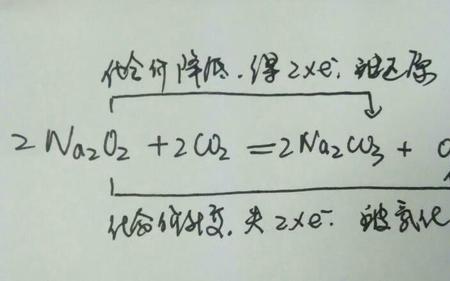 化合价降低.得2×e⁻.被还原
2Na₂O₂+2CO₂=2Na₂CO₃+
化合价升高.失2×e⁻.被氧化